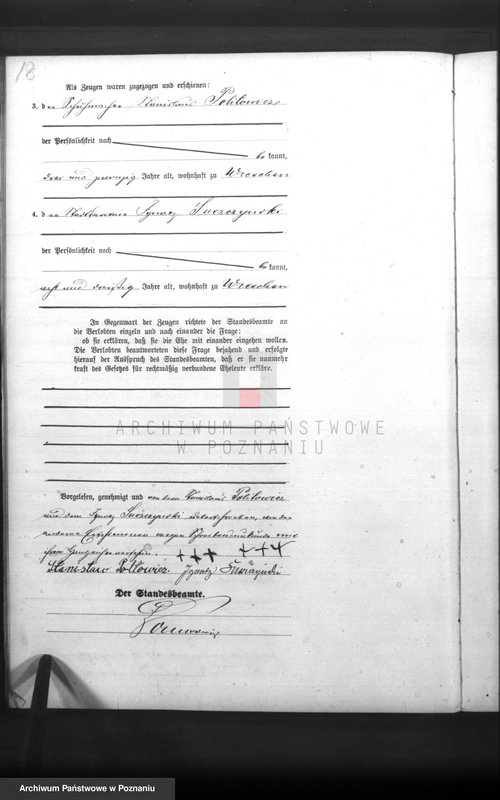 18
Als Zeugen waren zugezogen und erschienen:
3. der Schuhmacher Stanislaus Poltowicz
der Persönlichkeit nach
be kannt,
drei und zwanzig Jahre alt, wohnhaft zu Wreschen
4. der Ignatz
der Persönlichkeit nach
be kannt,
acht und dreißig Jahre alt, wohnhaft zu Wreschen
In Gegenwart der Zeugen richtete der Standesbeamte an
die Verlobten einzeln und nach einander die Frage:
ob sie erklären, daß sie die Ehe mit einander eingehen wollen.
Die Verlobten beantworteten diese Frage bejahend und erfolgte
hierauf der Ausspruch des Standesbeamten, daß er sie nunmehr
kraft des Gesetzes für rechtmäßig verbundene Eheleute erkläre.
ARCHIWUM PAŃSTWOWE
W POZNANIU
Vorgelesen, genehmigt und von dem Stanislaus Poltowicz
und dem Ignatz unterschrieben, von den
anderen Erschienenen wegen Schreibensunkunde mit
ihren Handzeichen versehen. +++ +++
Stanisław Poltowicz Ignatz
Der Standesbeamte.
Archiwum Państwowe w Poznaniu
Archiwum Państwowe w Poznaniu